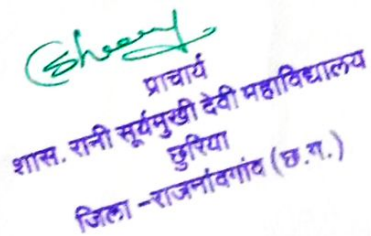 प्राचार्य
शास. रानी सूर्यमुखी देवी महाविद्यालय
छुरिया
जिला -राजनांवगांव (छ.ग.)